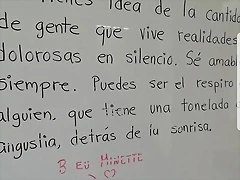 idea de la cantida
de gente que vive realidades
dolorosas en silencio. Sé amabl
siempre. Puedes ser el respiro
alguien, que tiene una tonelada
angustia, detrás de tu sonrisa.
B EU